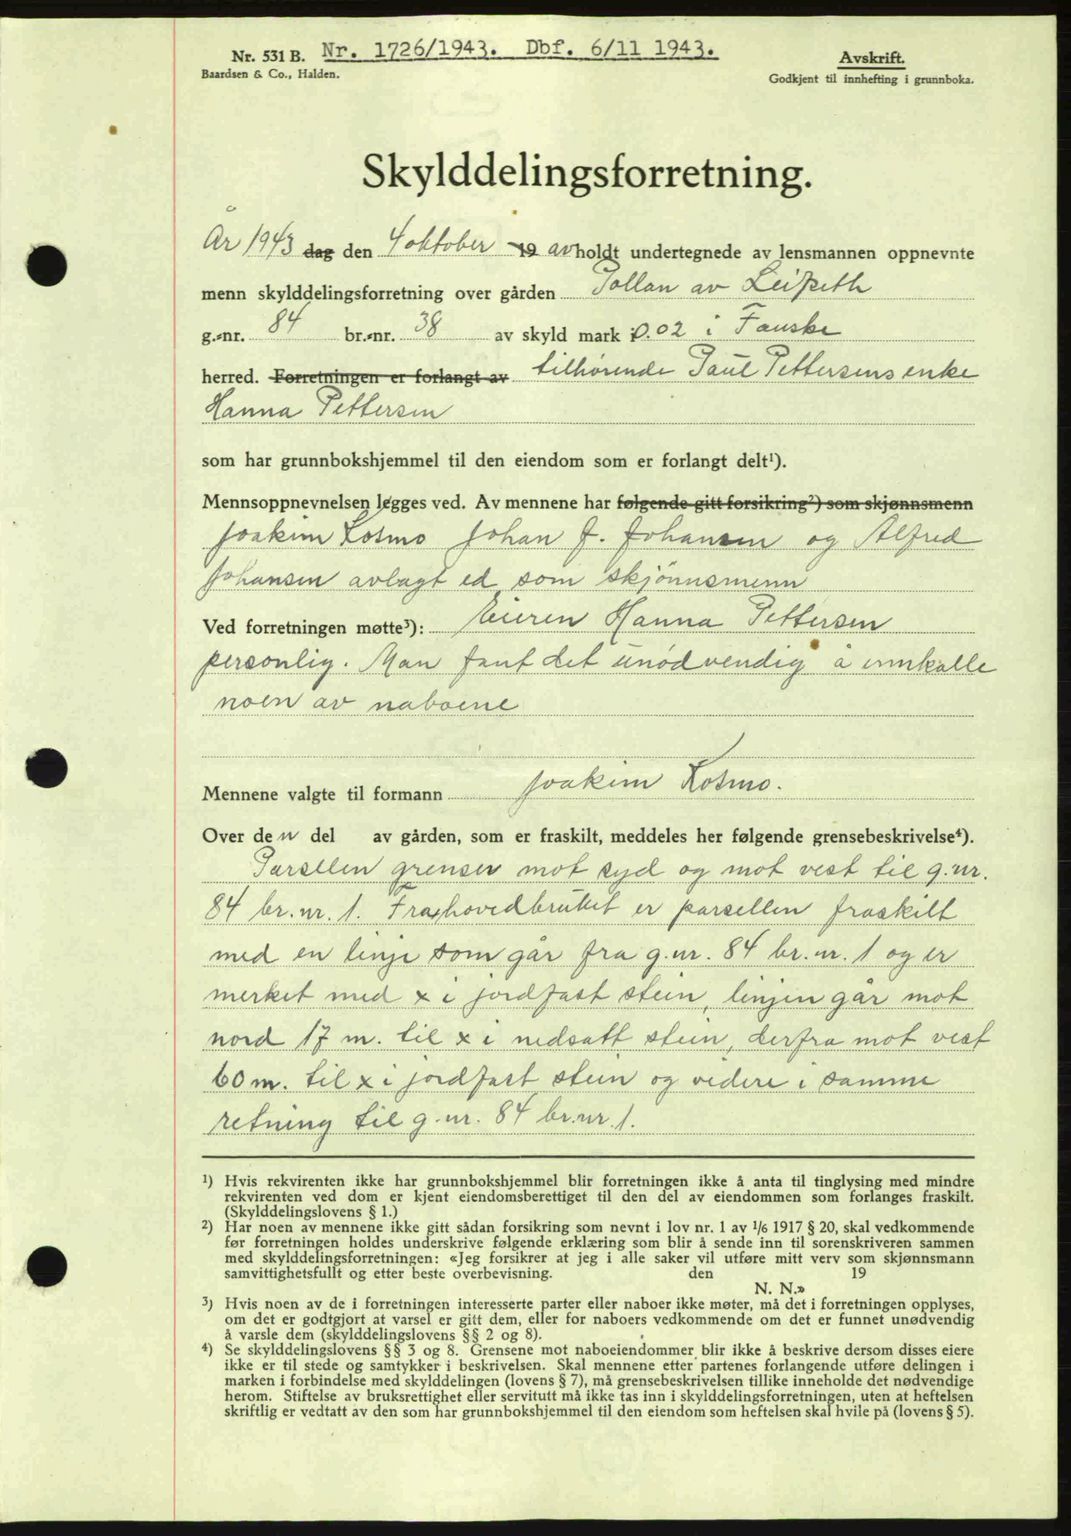 Nr. 531 B. Nr. 1726/1943. Dbf. 6/11 1943. Avskrift.
Baardsen & Co., Halden. Godkjent til innhefting i grunnboka.
Skylddelingsforretning.
År 1943 dag den 4 oktober 19 avholdt undertegnede av lensmannen oppnevnte
menn skylddelingsforretning over gården Pollan av Leifseth
g.-nr. 84 br.-nr. 38 av skyld mark 0.02 i Fauske
herred. Forretningen er forlangt av tilhørende Paul Pettersens enke
Hanna Pettersen
som har grunnbokshjemmel til den eiendom som er forlangt delt¹).
Mennsoppnevnelsen legges ved. Av mennene har følgende gitt forsikring²) som skjønnsmenn
Joakim Kosmo Johan J. Johansen og Alfred
Johansen avlagt ed som skjønnsmenn
Ved forretningen møtte³): Eieren Hanna Pettersen
personlig. Man fant det unødvendig å innkalle
noen av naboene
Mennene valgte til formann Joakim Kosmo.
Over den del av gården, som er fraskilt, meddeles her følgende grensebeskrivelse⁴).
Parsellen grenser mot syd og mot vest til g.nr.
84 br.nr. 1. Fra hovedbruket er parsellen fraskilt
med en linje som går fra g.nr. 84 br.nr. 1 og er
merket med x i jordfast stein, linjen går mot
nord 17 m. til x i nedsatt stein, derfra mot vest
60 m. til x i jordfast stein og videre i samme
retning til g.nr. 84 br.nr. 1.
¹) Hvis rekvirenten ikke har grunnbokshjemmel blir forretningen ikke å anta til tinglysing med mindre
rekvirenten ved dom er kjent eiendomsberettiget til den del av eiendommen som forlanges fraskilt.
(Skylddelingslovens § 1.)
²) Har noen av mennene ikke gitt sådan forsikring som nevnt i lov nr. 1 av 1/6 1917 § 20, skal vedkommende
før forretningen holdes underskrive følgende erklæring som blir å sende inn til sorenskriveren sammen
med skylddelingsforretningen: «Jeg forsikrer at jeg i alle saker vil utføre mitt verv som skjønnsmann
samvittighetsfullt og etter beste overbevisning. den 19
N. N.»
³) Hvis noen av de i forretningen interesserte parter eller naboer ikke møter, må det i forretningen opplyses,
om det er godtgjort at varsel er gitt dem, eller for naboers vedkommende om det er funnet unødvendig
å varsle dem (skylddelingslovens §§ 2 og 8).
⁴) Se skylddelingslovens §§ 3 og 8. Grensene mot naboeiendommer blir ikke å beskrive dersom disses eiere
ikke er til stede og samtykker i beskrivelsen. Skal mennene etter partenes forlangende utføre delingen i
marken i forbindelse med skylddelingen (lovens § 7), må grensebeskrivelsen tillike inneholde det nødvendige
herom. Stiftelse av bruksrettighet eller servitutt må ikke tas inn i skylddelingsforretningen, uten at heftelsen
skriftlig er vedtatt av den som har grunnbokshjemmel til den eiendom som heftelsen skal hvile på (lovens § 5).